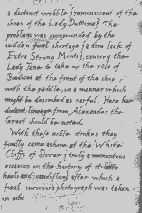 a distinct wobble (reminiscent of the
days of the Lady Buttons). The
problem was compounded by the
sudden fuel shortage (a dire lack of
Extra Strong Mints), causing the
Lady Jena to take up the role of
Boudicca at the front of the ship
with the paddle, in a manner which
might be described as careful. Here her
lineage from Alexander the
Great should be noted.
With these noble strokes they
finally came ashore at the White
Cliffs of Dover (truly a momentous
occasion in the history of
and), after which a
final survivors photograph was taken